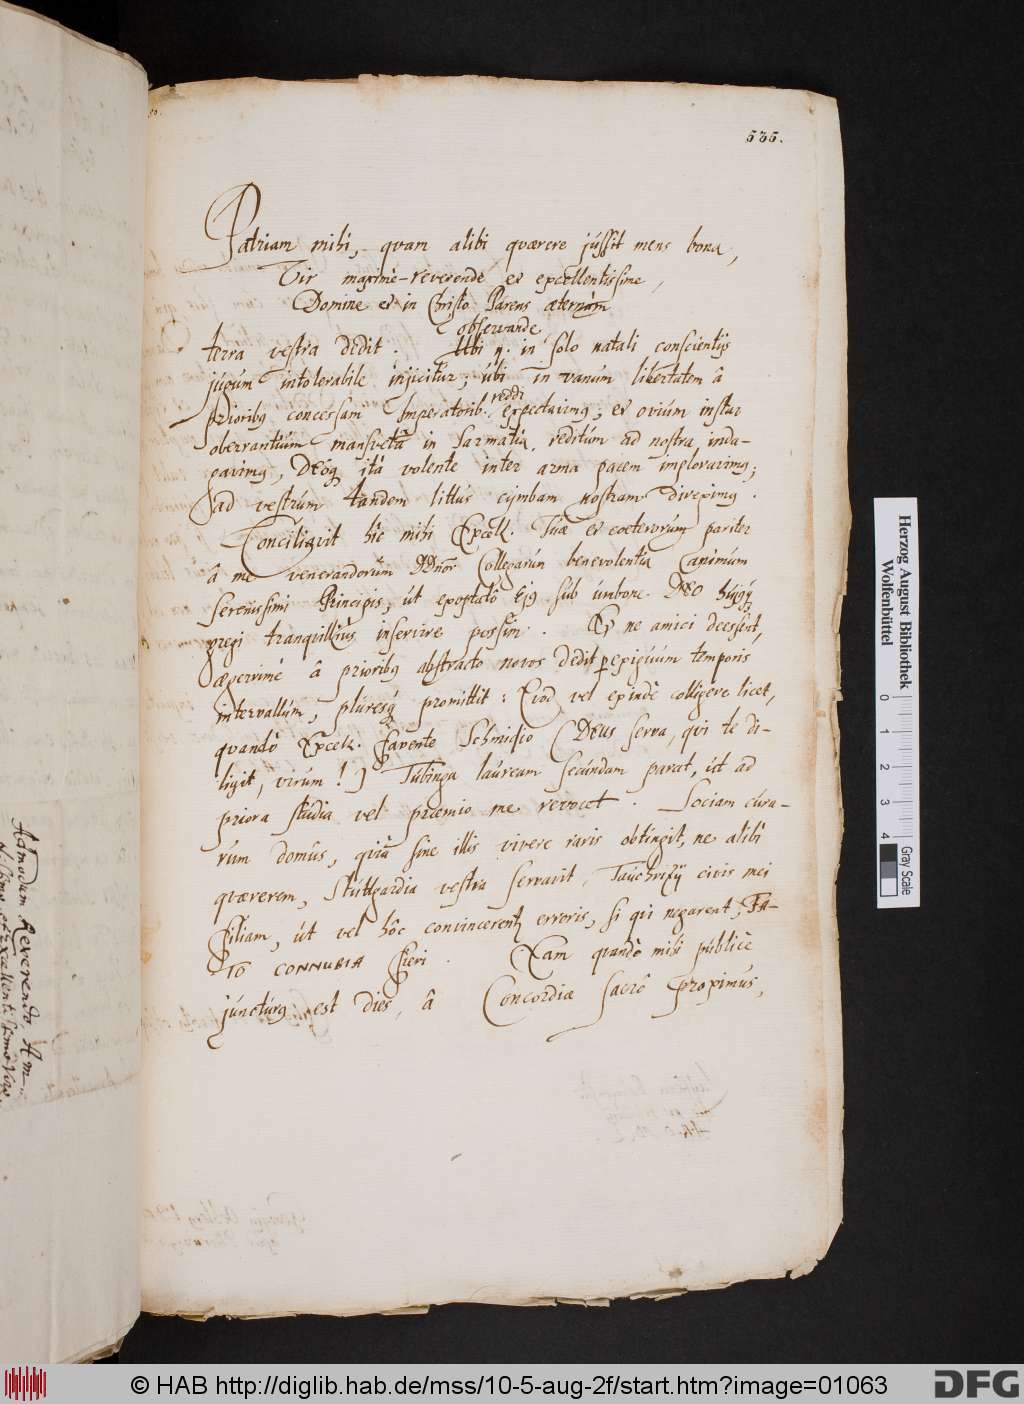 535.
Patriam mihi, quam alibi quærere jussit mens bona,
Vir maximè-reverende et excellentissime,
Domine et in Christo Parens æternùm
observande
terra vestra dedit. Ubi n. in solo natali conscientijs
jugum intolerabile injicitur; ubi in vanum libertatem â
prioribus concessam Imperatorib. reddi expectavimus, et ovium instar
oberrantium mansvetâ in Sarmatia reditum ad nostra inda-
gavimus, DEOq ità volente inter arma pacem imploravimus;
ad vestrum tandem littus cymbam nostram direximus.
Conciliavit hîc mihi Excell. Tuæ et cœterorum pariter
â me venerandorum DDnor Collegarum benevolentia animum
Serenissimi Principis, ut exoptatô Ejus sub umbone DEO hujus
gregi tranquillius inservire possim. Et ne amici deessent,
ægerrimè â prioribus abstracto novos dedit per exiguum temporis
intervallum, pluresq promittit: Qvod vel exindè colligere licet,
quandò Excell. favente Schmidio (DEUS serva, qui te di-
ligit, virum!) Tubinga lauream secundam parat, ut ad
priora studia vel præmio me revocet. Sociam cura-
rum domus, quia sine illis vivere raris obtingit, ne alibi
quærerem, Stuttgardia vestra servavit, Tauchrizy civis mei
Filiam, ut vel hôc convincerent erroris, si qui negarent, FA-
TO CONNUBIA fieri. Nam quandò mihi publicè
juncturus est dies, â Concordiæ sacrô proximus,
Admodum Reverendo, Am-
Herzog August Bibliothek
Wolfenbüttel
0 1 2 3 4
Gray Scale
© HAB http://diglib.hab.de/mss/10-5-aug-2f/start.htm?image=01063
DFG